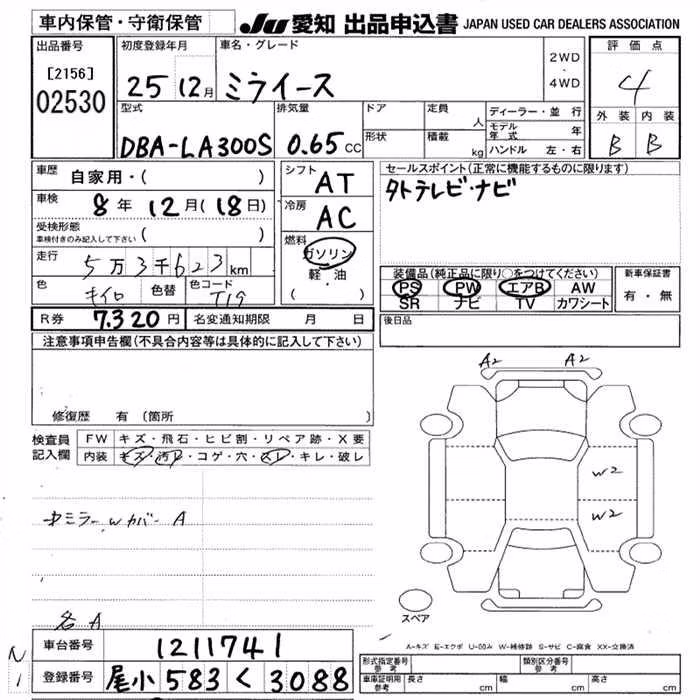 車内保管・守衛保管 JU 愛知 出品申込書 JAPAN USED CAR DEALERS ASSOCIATION
出品番号 [2156] 02530
初度登録年月 25 12月
車名・グレード ミライース
2WD・4WD
評価点 4
外装 内装
B B
型式 DBA-LA300S
排気量 0.65 CC
ドア
形状
定員 人
積載 kg
ディーラー・並行
モデル年式 年
ハンドル 左・右
車歴 自家用・( )
車検 8年 12月(18日)
受検形態 車検付きのみ記入して下さい ( )
走行 5万3千623km
色 キイロ 色替 色コード T19
シフト AT
冷房 AC
燃料 ガソリン
軽・油
・( )
セールスポイント(正常に機能するものに限ります)
外テレビ・ナビ
装備品(純正品に限り○をつけてください)
PS PW エアB AW
SR ナビ TV カワシート
新車保証書
有・無
R券 7.320円 名変通知期限 月 日
後日品
注意事項申告欄(不具合内容等は具体的に記入して下さい)
修復歴 有(箇所 )
検査員記入欄
FW キズ・飛石・ヒビ割・リペア跡・X要
内装 キズ・汚レ・コゲ・穴・スレ・キレ・破レ
A2 A2
W2
W2
ミラーWカバー A
各A
スペア
A-キズ E-エクボ U-凹み W-補修跡 S-サビ C-腐食 XX-交換済
車台番号 1211741
登録番号 尾小 583 く 3088
型式指定番号 参考
類別区分番号 参考
車庫証明用 参考 長さ cm 幅 cm 高さ cm